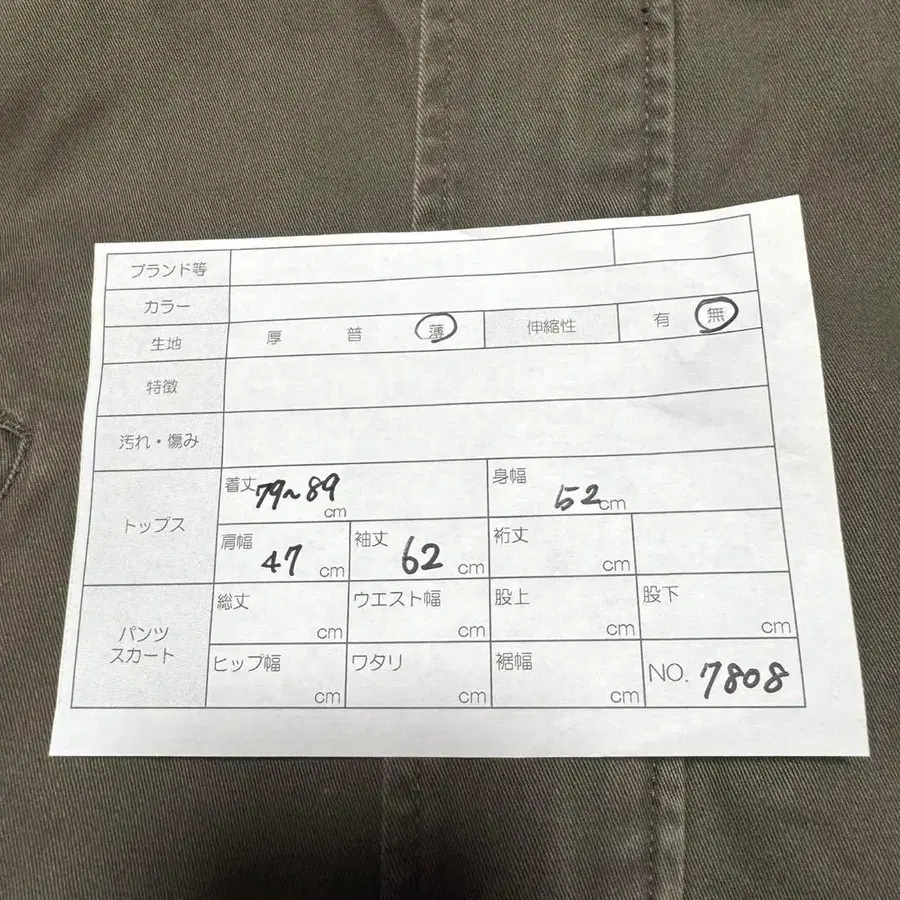 ブランド等
カラー
生地 厚 普 薄 伸縮性 有 無
特徴
汚れ・傷み
トップス
着丈 79~89 cm 身幅 52 cm
肩幅 47 cm 袖丈 62 cm 裄丈 cm
パンツ
スカート
総丈 cm ウエスト幅 cm 股上 cm 股下 cm
ヒップ幅 cm ワタリ cm 裾幅 cm NO. 7808